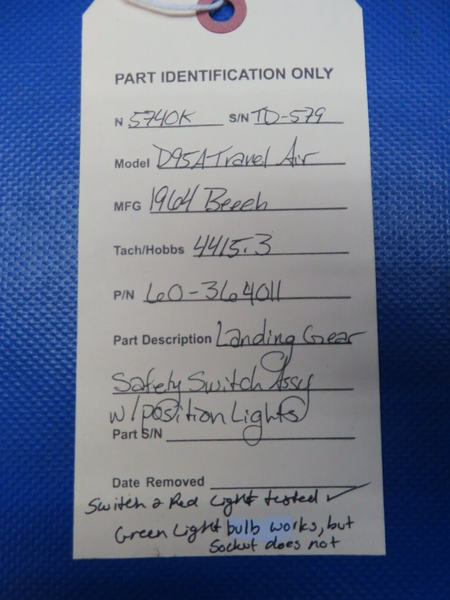 PART IDENTIFICATION ONLY
N 5740K S/N TD-579
Model D95A Travel Air
MFG 1964 Beech
Tach/Hobbs 4415.3
P/N 60-364011
Part Description Landing Gear
Safety Switch Assy
w/position Lights
Part S/N
Date Removed
Switch & Red Light tested ✓
Green Light bulb works, but
Socket does not